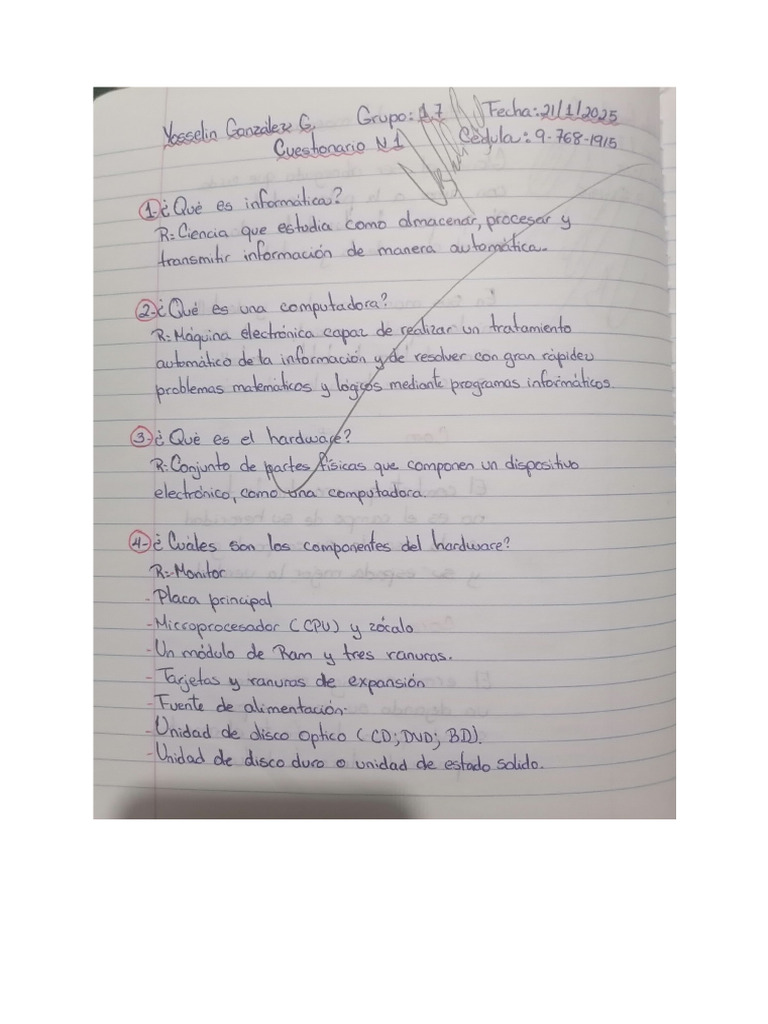 Yosselin González G. Grupo: 1.7 Fecha: 21/1/2025
Cuestionario N 1 Cédula: 9-768-1915
1-¿Qué es informática?
R= Ciencia que estudia como almacenar, procesar y
transmitir información de manera automática.
2-¿Qué es una computadora?
R= Máquina electrónica capaz de realizar un tratamiento
automático de la información y de resolver con gran rápidez
problemas matemáticos y lógicos mediante programas informáticos.
3-¿Qué es el hardware?
R= Conjunto de partes físicas que componen un dispositivo
electrónico, como una computadora.
4-¿Cuáles son los componentes del hardware?
R= Monitor
- Placa principal
- Microprocesador (CPU) y zócalo
- Un módulo de Ram y tres ranuras.
- Tarjetas y ranuras de expansión
- Fuente de alimentación.
- Unidad de disco Optico (CD; DVD; BD).
- Unidad de disco duro o unidad de estado solido.